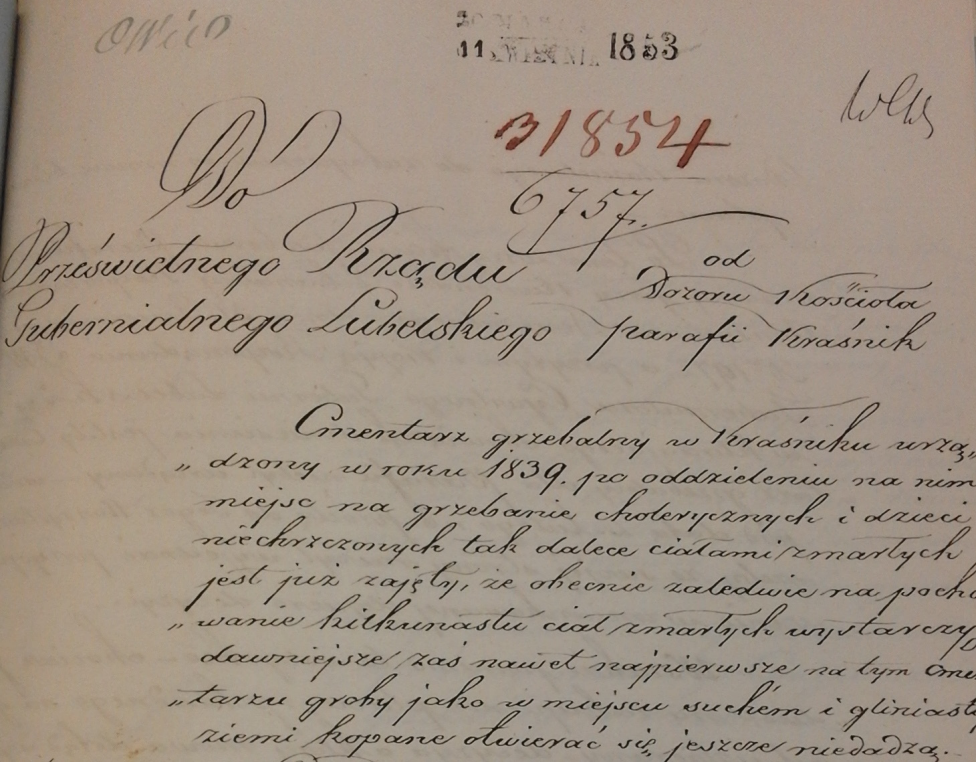 1853
31854
6757.
Do
Prześwietnego Rządu
Gubernialnego Lubelskiego
od
Dozoru Kościoła
parafii Kraśnik
Cmentarz grzebalny w Kraśniku urzą„
„dzony w roku 1839. po oddzieleniu na nim
miejsc na grzebanie cholerycznych i dzieci
niechrzczonych tak dalece ciałami zmarłych
jest już zajęty, że obecnie zaledwie na pocho
„wanie kilkunastu ciał zmarłych wystarczy
dawniejsze zaś nawet najpierwsze na tym cmen
„tarzu groby jako w miejscu suchém i gliniast
ziemi kopane otwierać się jeszcze niedadzą.